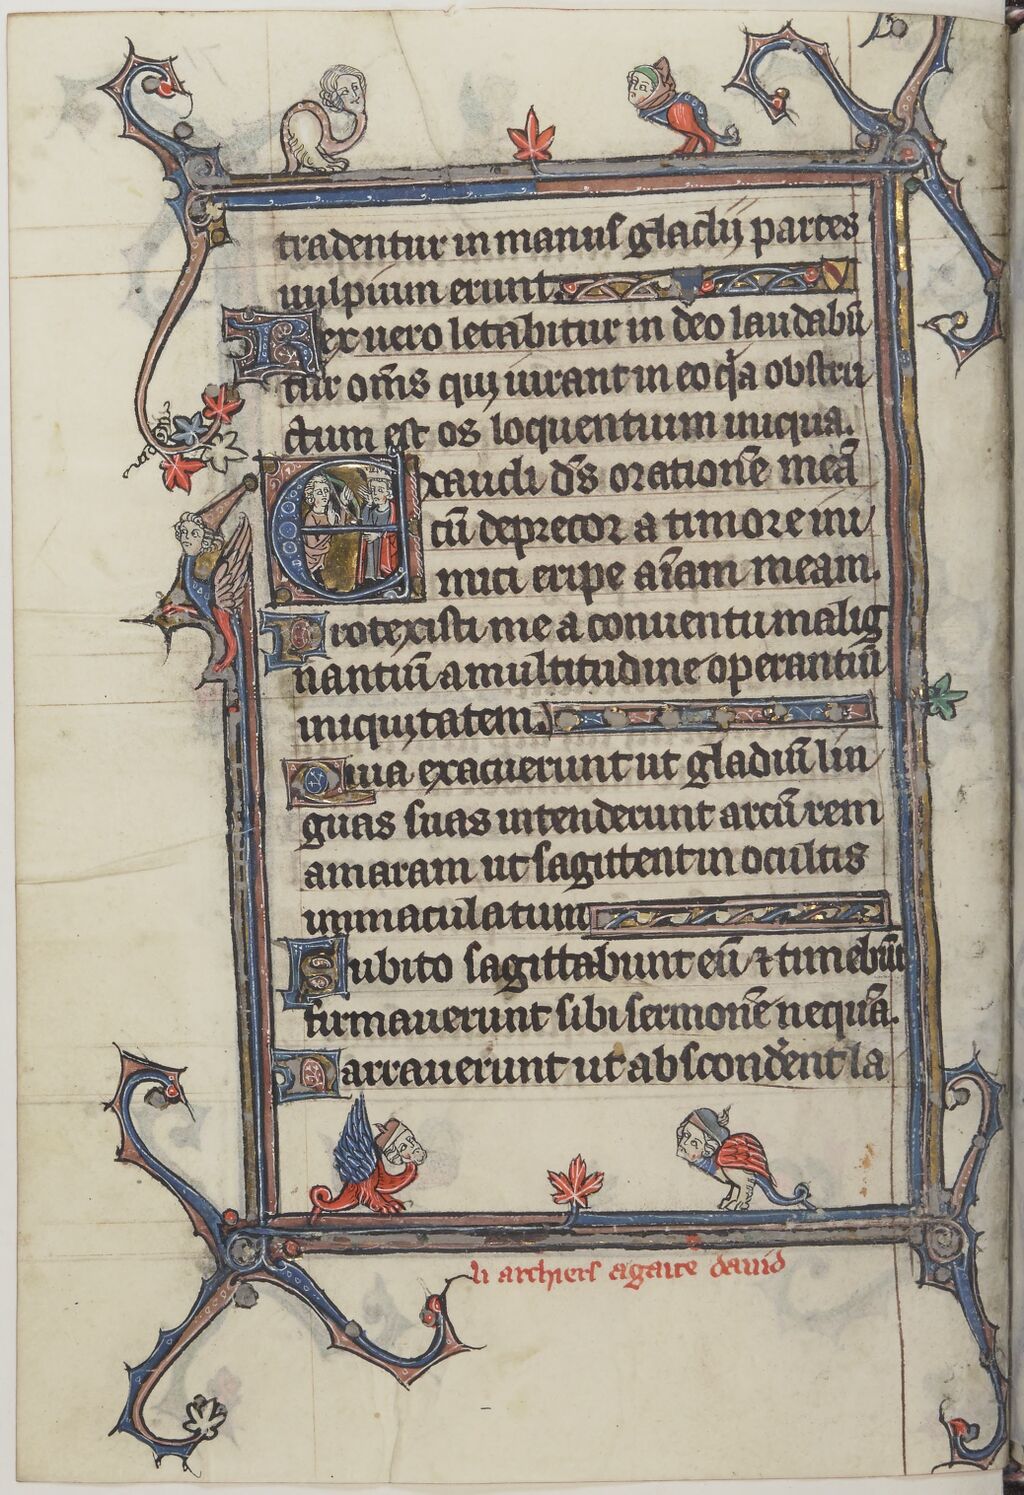 tradentur in manus gladii partes
uulpium erunt.
Rex uero letabitur in deo laudabū
tur om̄s qui iurant in eo q̇a obstru
ctum est os loquentium iniqua.
Exaudi dn̄s orationē meā
cū deprecor a timore ini
mici eripe aīam meam.
Protexisti me a conuentu malig
nantiū a multitudine operantiū
iniquitatem.
Quia exacuerunt ut gladiū lin
guas suas intenderunt arcū rem
amaram ut sagittent in ocultis
immaculatum
Subito sagittabunt eū ⁊ timebūt
firmauerunt sibi sermonē nequā.
Narrauerunt ut absconderent la
li archiers agaite dauid